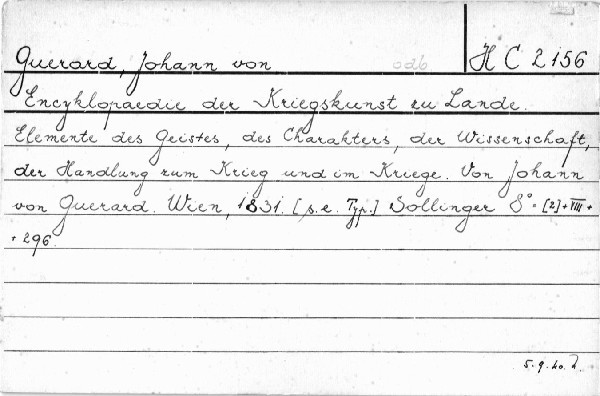 Querard, Johann von odb H C 2156
Encyklopaedie der Kriegskunst zu Lande.
Elemente des Geistes, des Charakters, der Wissenschaft,
der Handlung zum Krieg und im Kriege. Von Johann
von Querard. Wien, 1831. [s.e. Typ.] Sollinger 8° = [2] + VIII +
+ 296.
5.9.40.